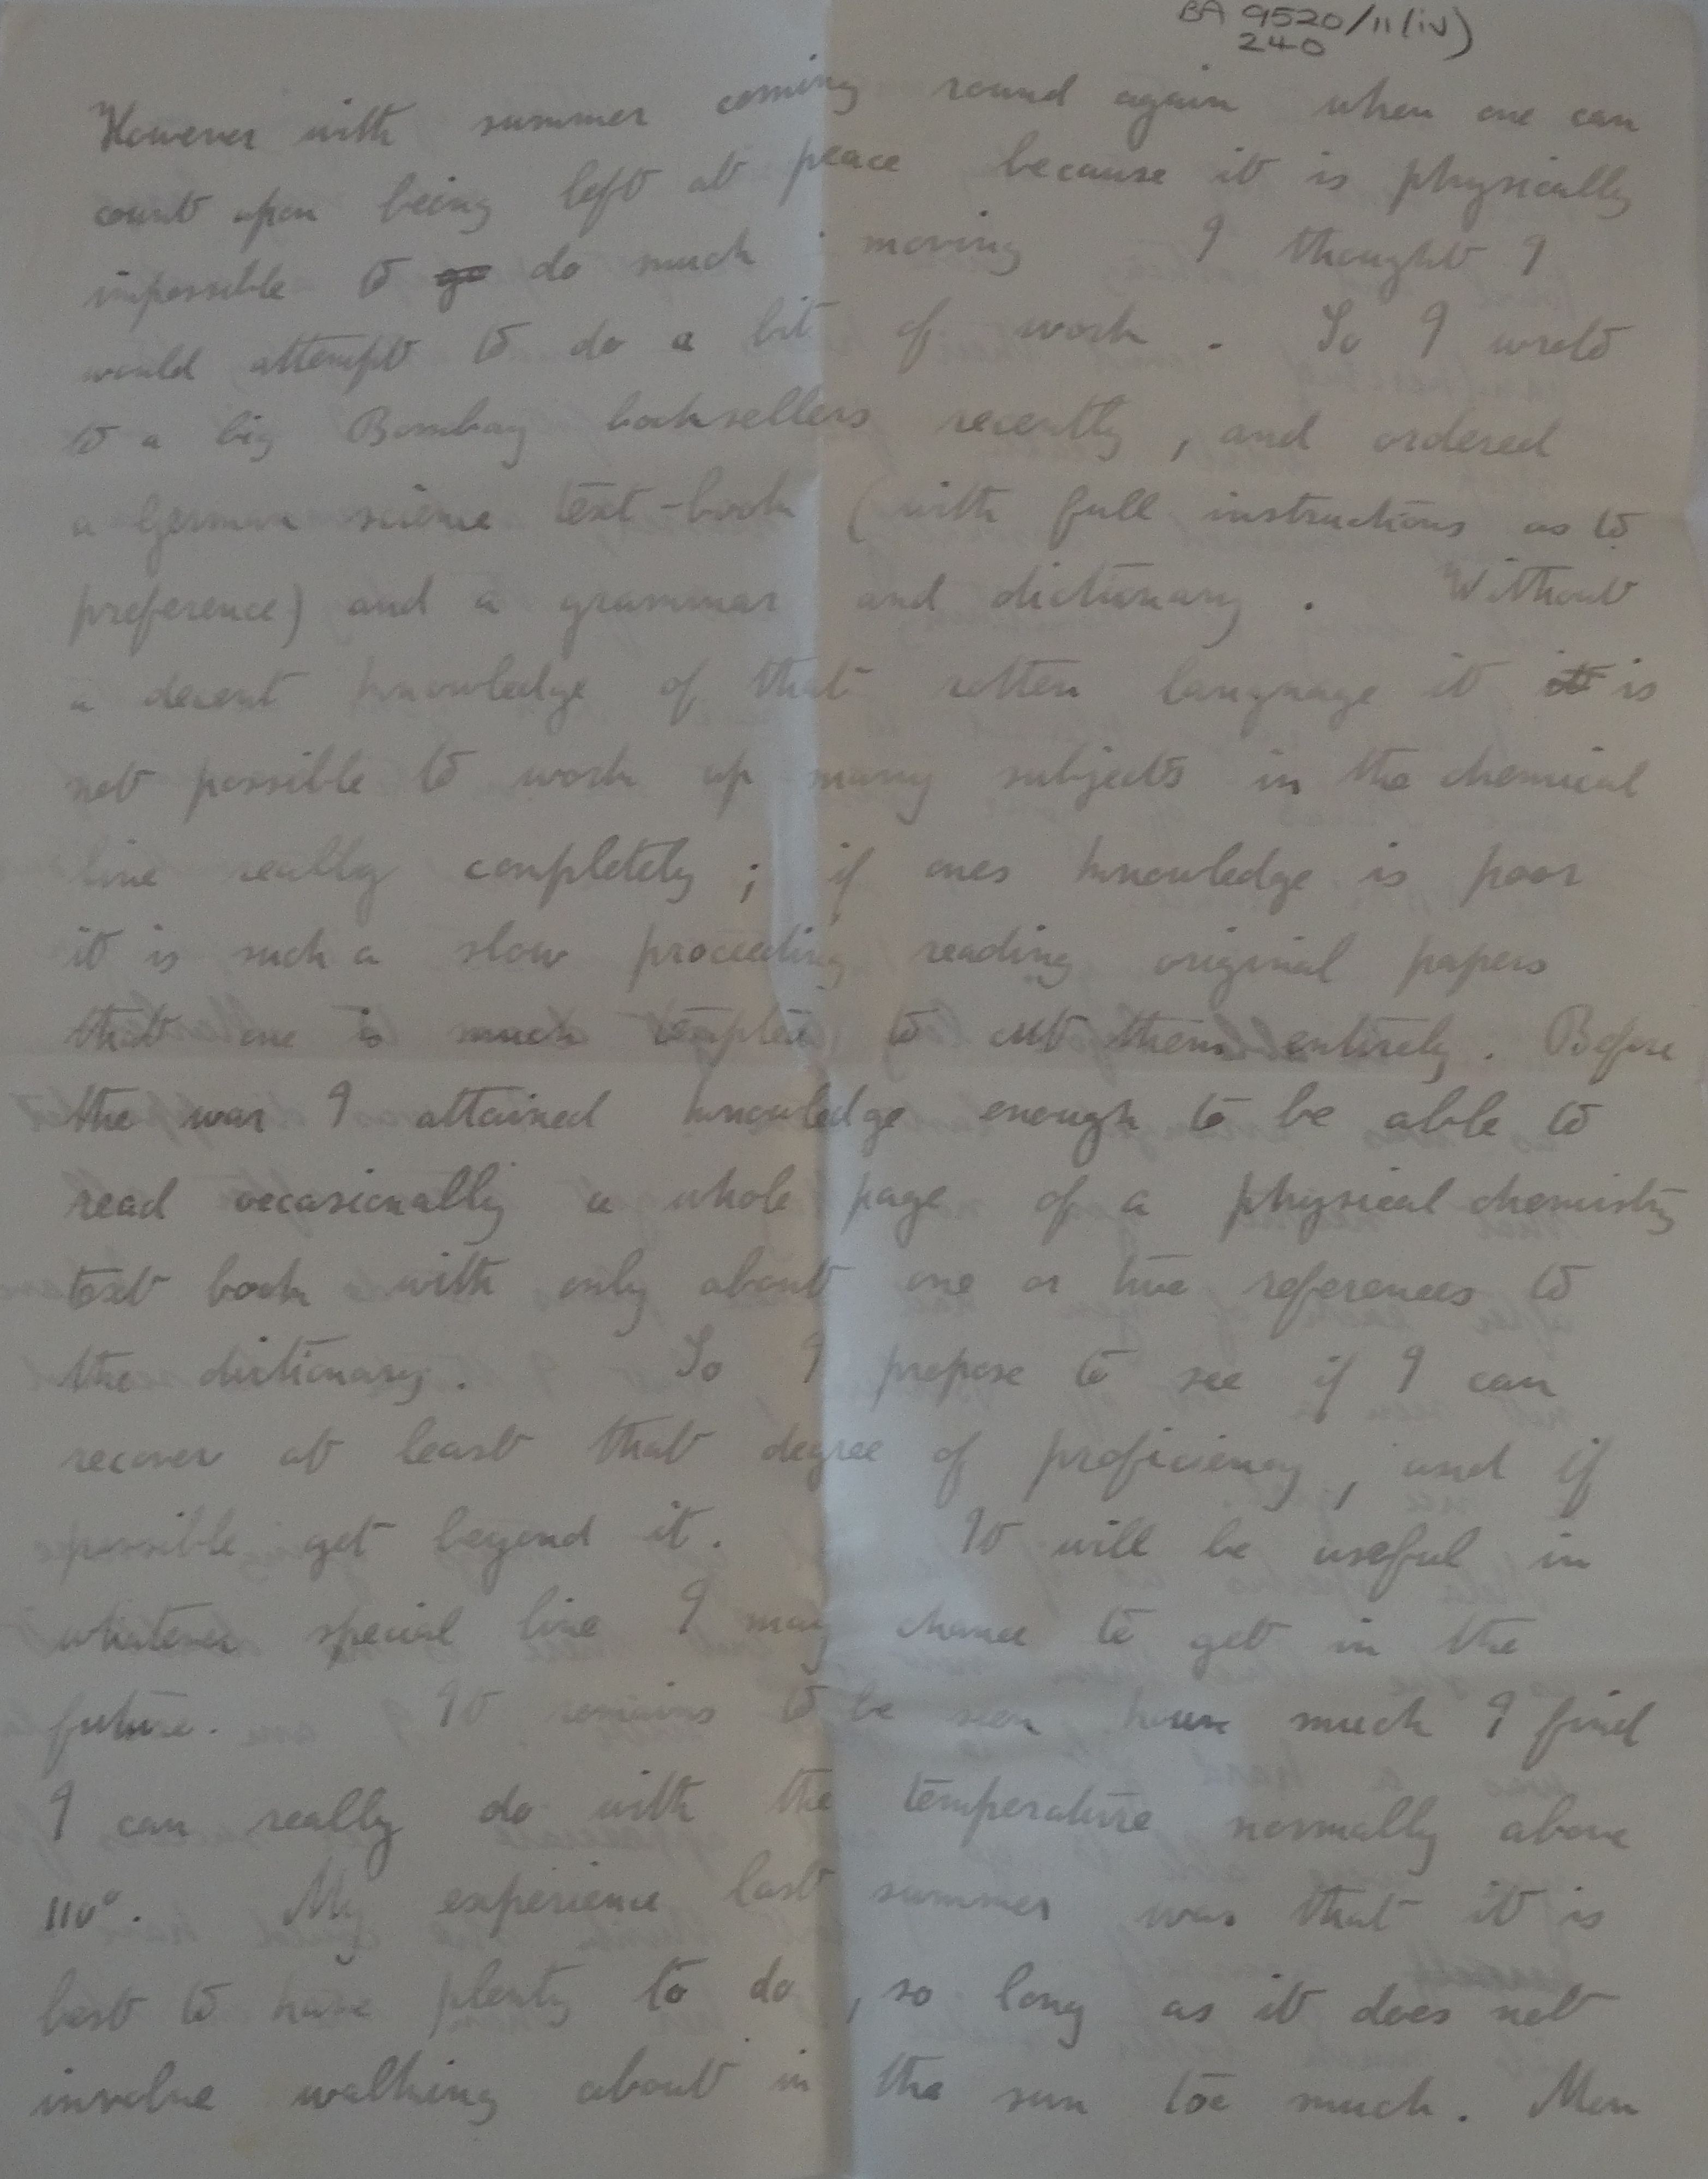 BA 9520/11(iv)
240
However with summer coming round again when one can
count upon being left at peace because it is physically
impossible to go do much moving I thought I
would attempt to do a bit of work. So I wrote
to a big Bombay booksellers recently, and ordered
a German science text-book (with full instructions as to
preference) and a grammar and dictionary. Without
a decent knowledge of that rotten language it it is
not possible to work up many subjects in the chemical
line really completely; if ones knowledge is poor
it is such a slow proceeding reading original papers
that one is much tempted to cut them entirely. Before
the war I attained knowledge enough to be able to
read occasionally a whole page of a physical chemistry
text book with only about one or two references to
the dictionary. So I propose to see if I can
recover at least that degree of proficiency, and if
possible get beyond it. It will be useful in
whatever special line I may chance to get in the
future. It remains to be seen how much I find
I can really do with the temperature normally above
110°. My experience last summer was that it is
best to have plenty to do, so long as it does not
involve walking about in the sun too much. Men